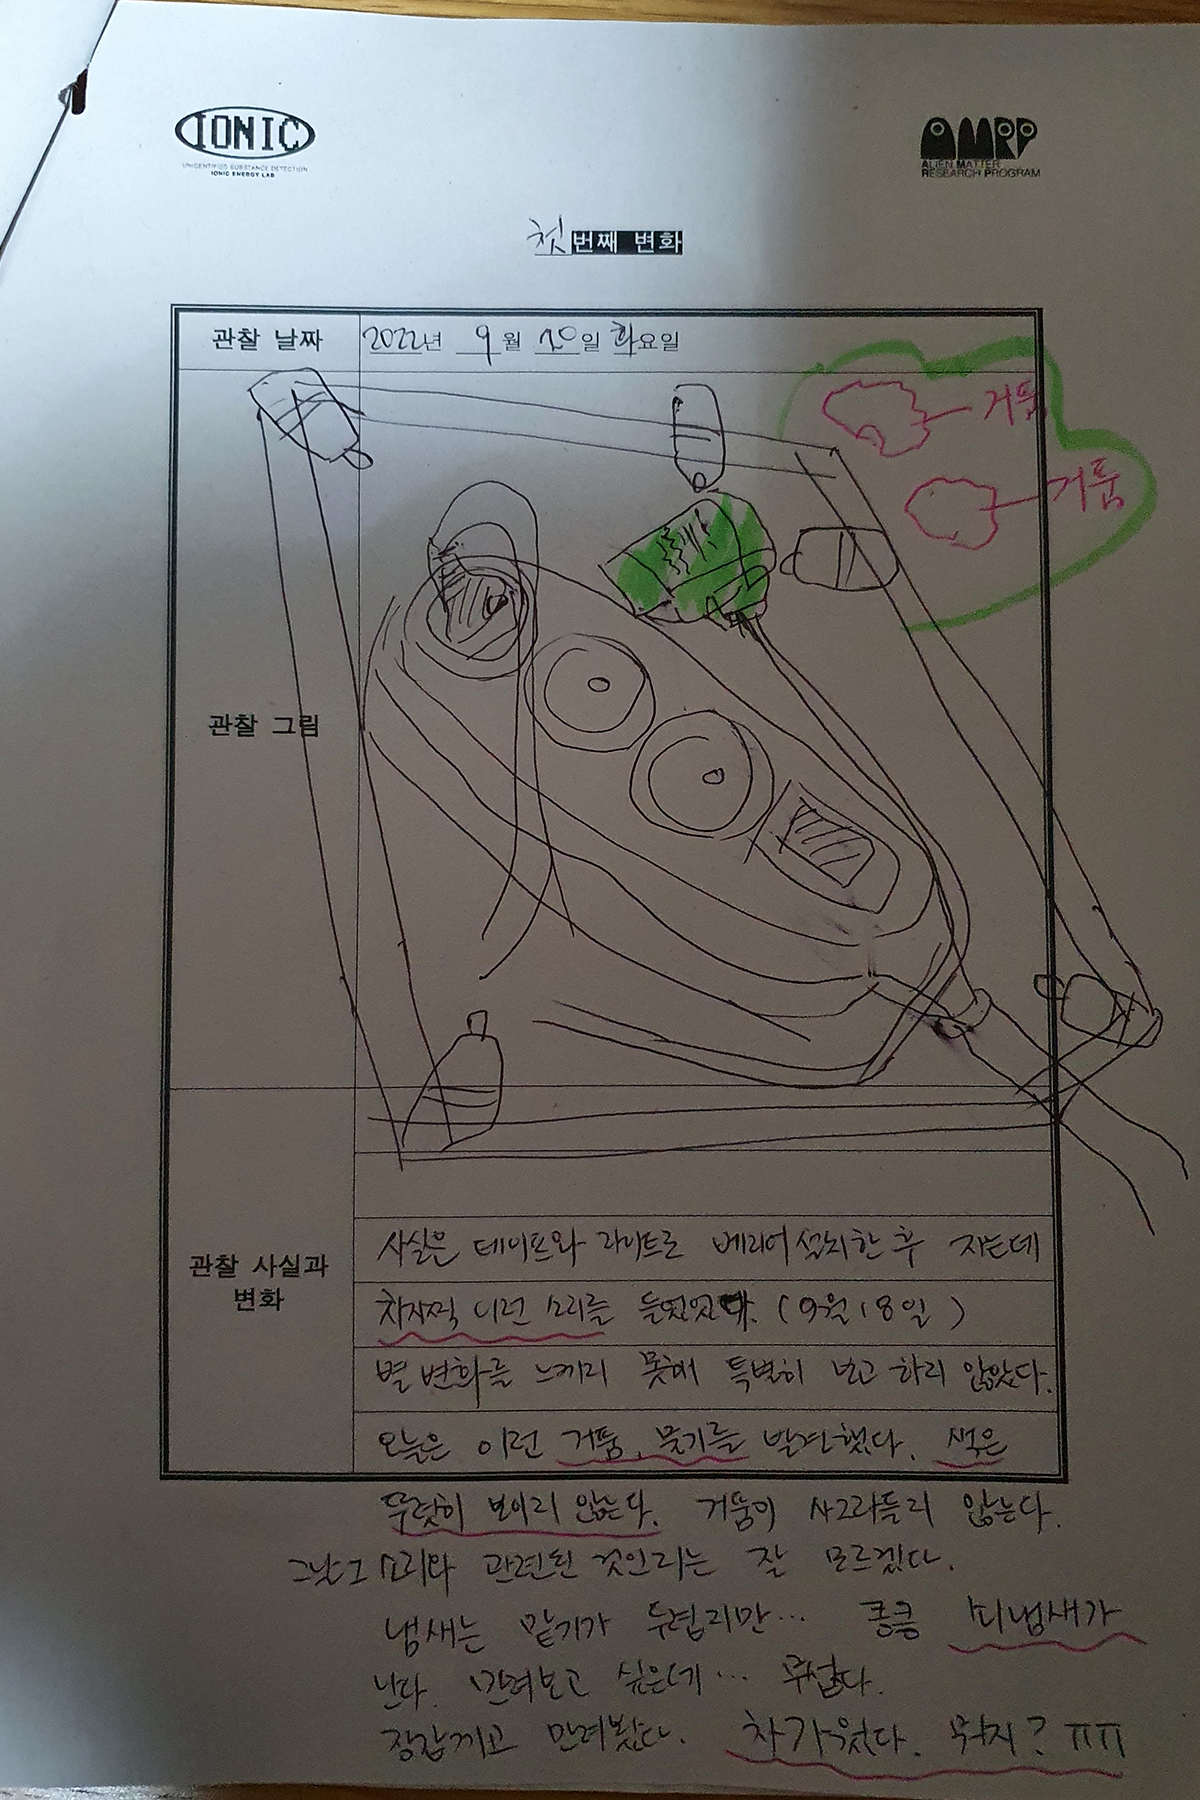 IONIC
UNIDENTIFIED SUBSTANCE DETECTION
IONIC ENERGY LAB
AMRP
ALIEN MATTER
RESEARCH PROGRAM
첫번째 변화
관찰 날짜
2022년 9월 20일 화요일
거품
거품
관찰 그림
관찰 사실과
변화
사실은 테이프와 라이트로 베리어 설치한 후 자는데
이런 소리를 들었었다. (9월 18일)
별 변화를 느끼지 못해 특별히 보고 하지 않았다.
오늘은 이런 거품, 물기를 발견했다. 색은
뚜렷히 보이지 않는다. 거품이 사그라들지 않는다.
그날 그 소리와 관련된 것인지는 잘 모르겠다.
냄새는 맡기가 두렵지만... 킁킁 피냄새가
난다. 만져보고 싶은데... 무섭다.
장갑끼고 만져봤다. 차가웠다. 뭐지? ㅠㅠ